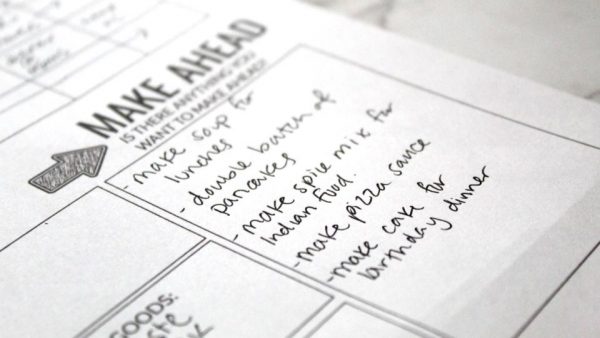 MAKE AHEAD
IS THERE ANYTHING YOU
WANT TO MAKE AHEAD?
- make soup for
lunches
- double batch of
pancakes
- make spice mix for
Indian food.
- make pizza sauce
- make cake for
birthday dinner
GOODS: